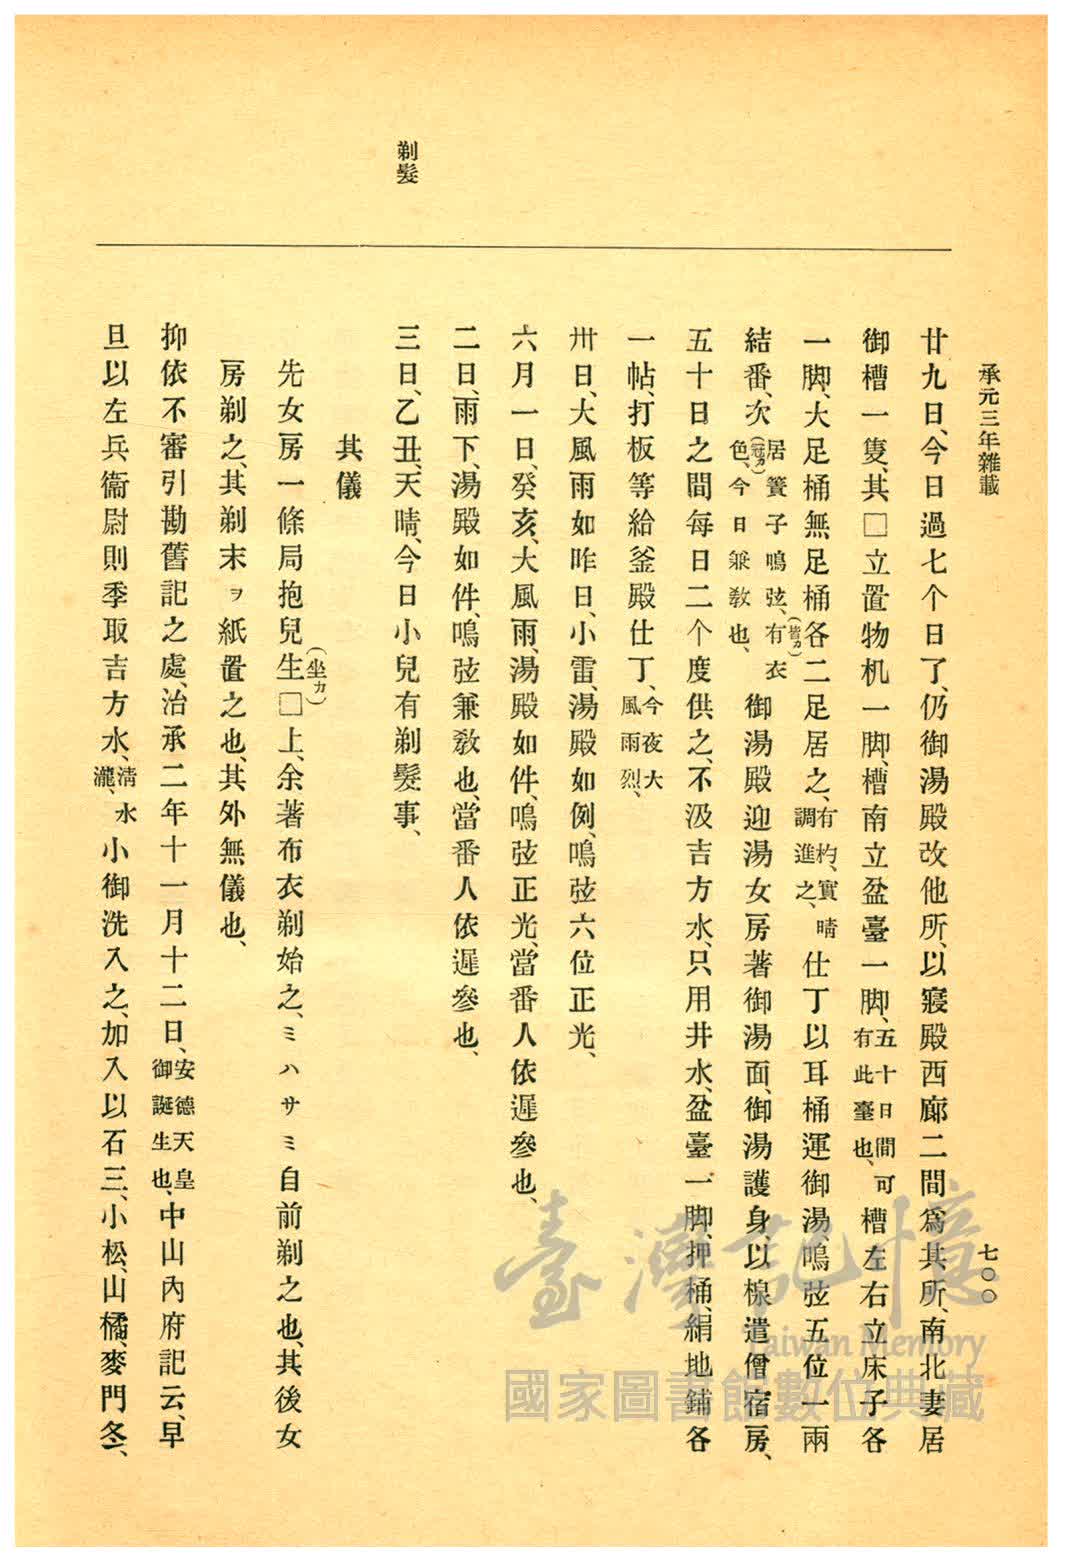 承元三年雜載
七〇〇
剃髮
廿九日、今日過七个日了、仍御湯殿改他所、以寢殿西廊二間爲其所、南北妻居
御槽一隻、其□立置物机一脚、槽南立盆臺一脚、五十日間可有此臺也、槽左右立床子各
一脚、大足桶無足桶各二足居之、有杓、實晴調進之、仕丁以耳桶運御湯、鳴弦五位一兩
結番、次居簀子鳴弦、有(皆カ)衣色(冠カ)、今日兼敎也、御湯殿迎湯女房著御湯面、御湯護身、以樑遣僧宿房、
五十日之間每日二个度供之、不汲吉方水、只用井水、盆臺一脚、押桶、絹地鋪各
一帖、打板等給釜殿仕丁、今夜大風雨烈、
卅日、大風雨如昨日、小雷、湯殿如例、鳴弦六位正光、
六月一日、癸亥、大風雨、湯殿如件、鳴弦正光、當番人依遲參也、
二日、雨下、湯殿如件、鳴弦兼敎也、當番人依遲參也、
三日、乙丑、天晴、今日小兒有剃髮事、
其儀
先女房一條局抱兒生(坐カ)□上、余著布衣剃始之、ミハサミ自前剃之也、其後女
房剃之、其剃末ヲ紙置之也、其外無儀也、
抑依不審引勘舊記之處、治承二年十一月十二日、安德天皇御誕生也、中山內府記云、早
旦以左兵衞尉則季取吉方水、淸水瀧、小御洗入之、加入以石三、小松、山橘、麥門冬、
臺灣記憶
Taiwan Memory
國家圖書館數位典藏